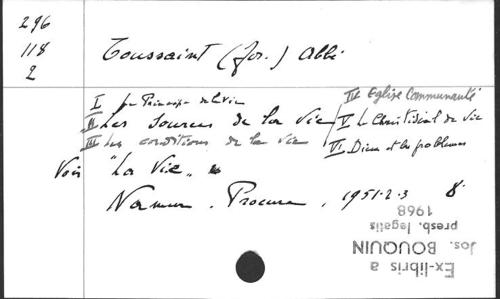 296
118
2
Toussaint (Jos.) Abbé
I Le Principe de la Vie
II Les Sources de la Vie
III Les conditions de la Vie
IV Eglise Communauté
V L'Chrétien de Vie
VI Dieu et les problèmes
Voir "La Vie"
Namur. Procure, 1951-2-3 8°
Ex-libris a
Jos. BOUQUIN
presb. legatis
1968